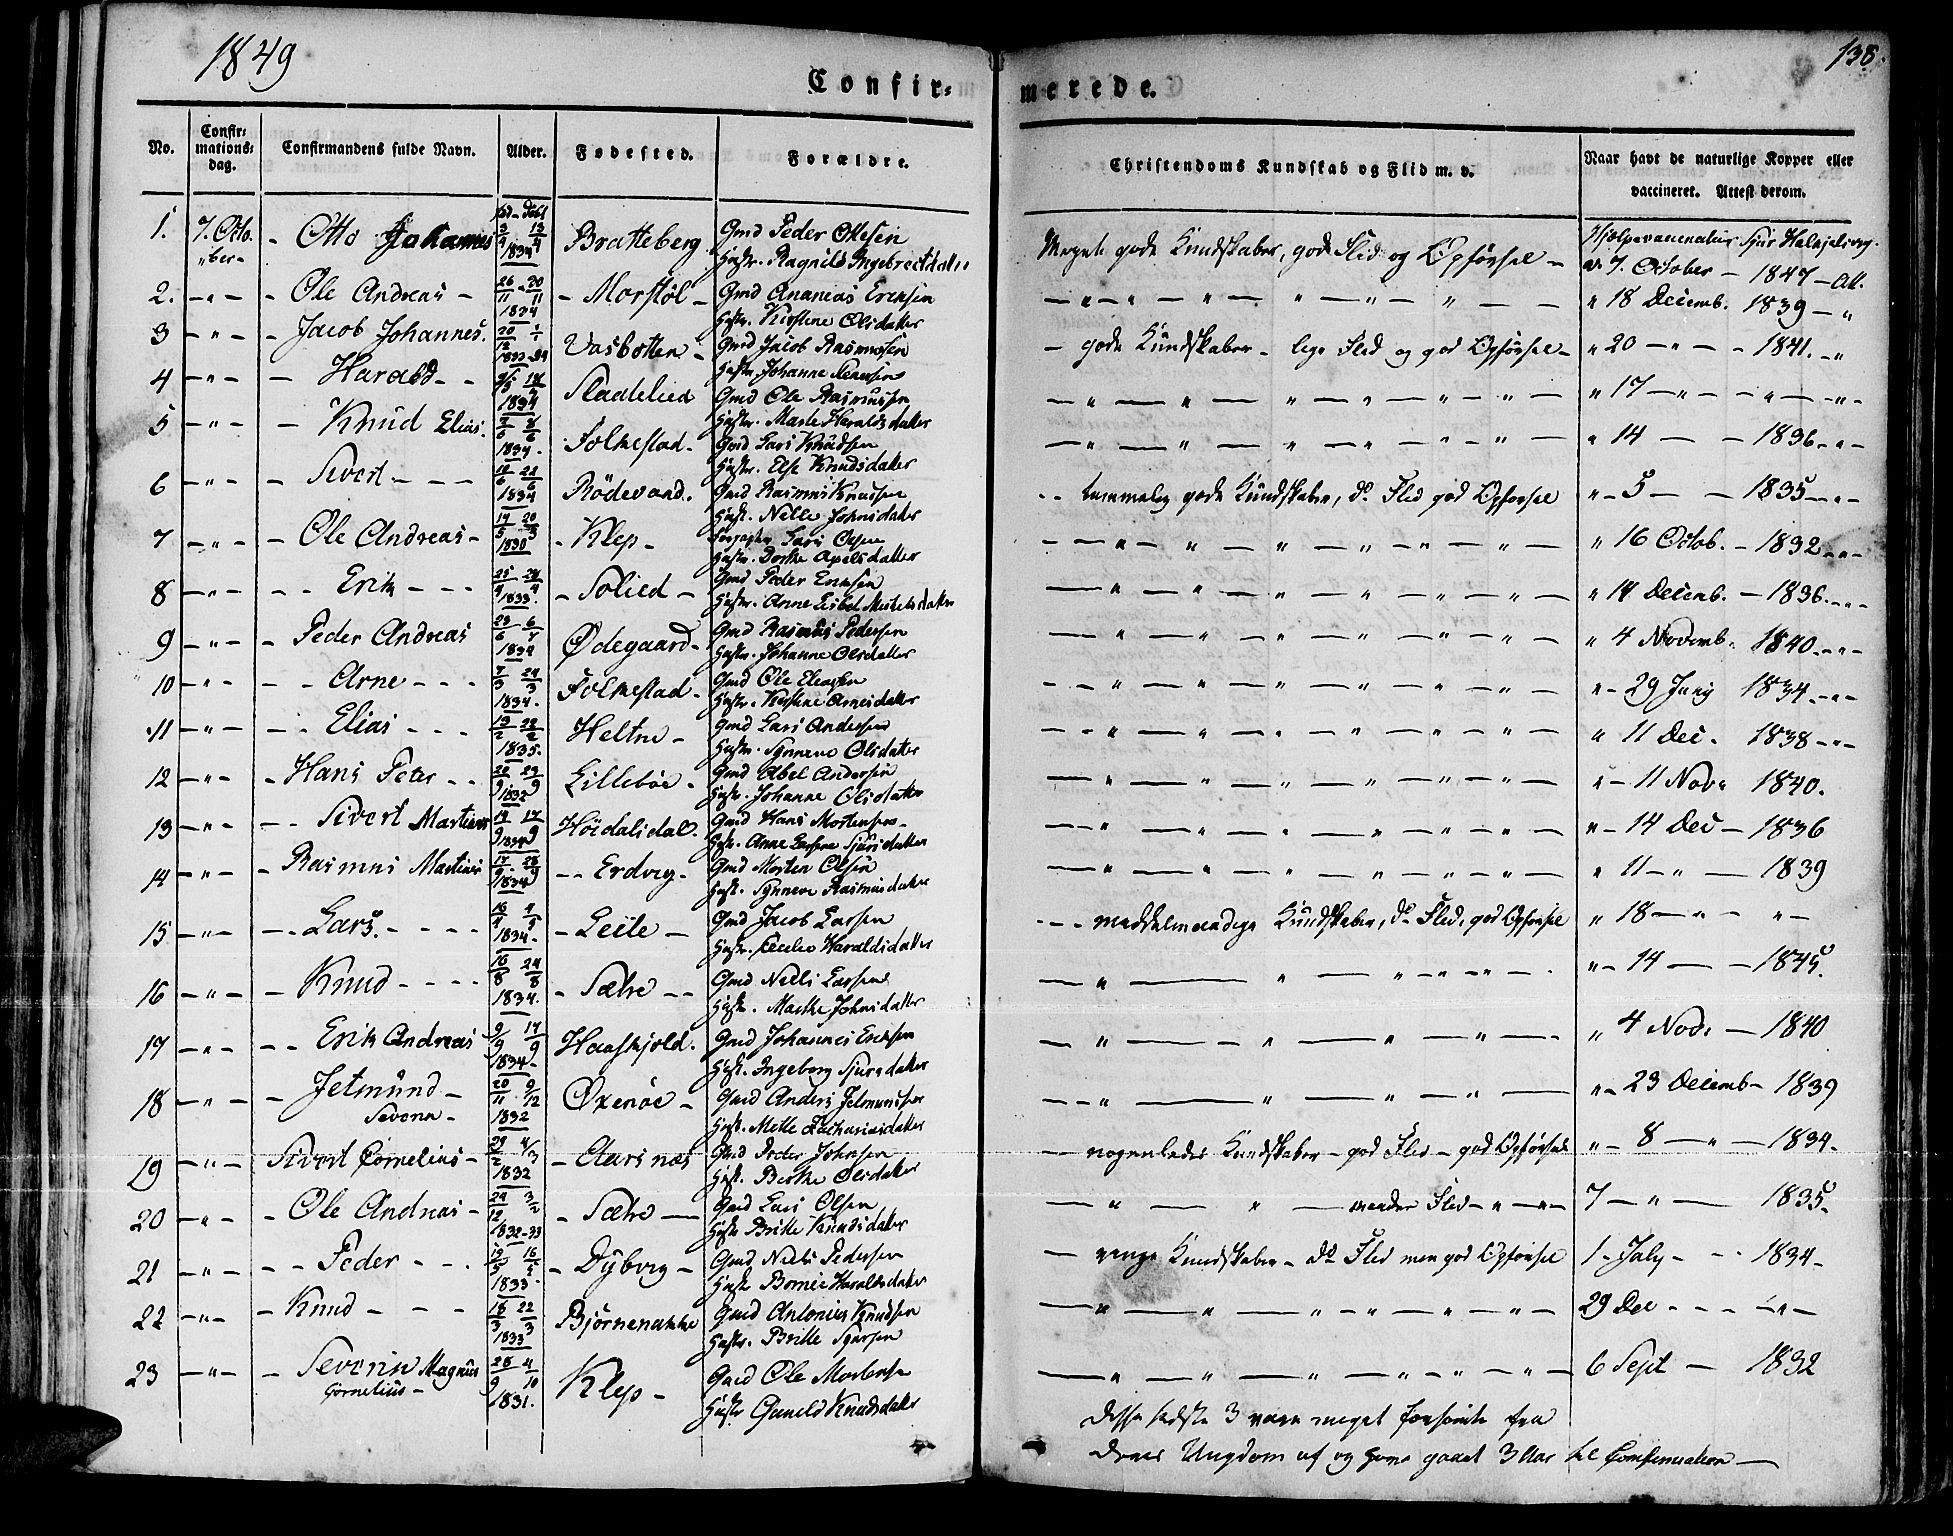 1849
138.
Confir=
merede.
No.
Confir=
mations=
dag.
Confirmandens fulde Navn.
Alder.
Fødested.
Forældre.
Christendoms Kundskab og Flid m. v.
Naar havt de naturlige Kopper eller
vaccineret. Attest derom.
1. 7. Octo. - Otto Johannes 1834 Bratteberg Gmd Peder Olesen
"ber- Hustr. Ragnild Ingebretsdatter
Meget gode Kundskaber, gode Flid og Opførsel -
7. October - 1847 - Att.
2. - " - - Ole Andreas - 26/11 - 20/11 1834 - Morstøl - Gmd Ananias Ericksen
Hustr. Kirstine Olsdatter
" 18 Decemb. 1839 - "
3 - " - - Jacob Johannes. 20/12 1/1 1833-34 Vasbotten - Gmd Jacob Rasmussen
Hustr. Johanne
- gode Kundskaber - lige Flid og god Opførsel - " 20 - " - - 1841. - "
4 - " - - Harald - - 1834 Gmd Ole Rasmussen
Hustr. Marte Haraldsdatter
" 17 - " - - " - - " -
5 - " - - Knud Elias. 1834. Folkestad. Gmd Lars Knudsen
Hustr. Else Knudsdatter
" 14 - - 1836 - " -
6 - " - - Sivert - - - 1834 Rödevand. Gmd Rasmus Knudsen
Hustr. Nelle Johnsdatter
- - temmelig gode Kundskaber, do Flid god Opførsel " - 5 - - 1835 - " -
7 - " - - Ole Andreas - 1830 - Klep - Lars Olsen
Hustr. Dorthe Axelsdatter
" 16 Octob. - 1832 - " -
8 - " - - - Erik - - - 1833. - Solied - Gmd Peder Ericksen
Hustr. Anne Lisbet
" 14 Decemb. - 1836. - " -
9 - " - - Peder Andreas 1834 Ødegaard - Gmd Rasmus Pedersen
Hustr. Johanne Olsdatter
" 4 Novemb. 1840. - " -
10 - " - - - Arne - - - 1834. Folkestad - Gmd Ole Eliasen
Hustr. Kirstine Arnesdatter
" - 29 Juny 1834. - " -
11 - " - - - Elias - - - 1835. Heltne - Gmd Lars Andersen
Hustr. Synneve Olsdatter
" 11 Dec. 1838 - " -
12 - " - - Hans Peter - - 1832 Lillebøe - Gmd Abel Andersen
Hustr. Johanne Olsdatter
" - 11 Novr 1840.
13 - " - - - Sivert Martinus 1834 Höidalsdal. Gmd Hans Mortensen
Hustr. Anne Larsine Sjursdatter
" - 14 Dec - 1836
14 - " - - Rasmus Martinus 1834 - - Erdvig - Gmd Morten Olsen
Hustr. Synneve Rasmusdatter
" 11 - " - 1839
15 - " - - - Lars. - - - - 1834 - - Leite - Gmd Jacob Larsen
Hustr. Cecilie Haraldsdatter
- - middelmaadige Kundskaber, do Flid, god Opførsel " 18 - " - " -
16 - " - - Knud - - - - 1834. - Sætre - - Gmd Niels Larsen
Hustr. Marthe Johnsdatter
" - 14 - - 1845.
17 - " - - - Erik Andreas 9/9 17/9 1834 - Haaskjold. Gmd Johannes Ericksen
Hustr. Ingeborg Sjursdatter
" 4 Nov. - 1840
18 - " - - Jetmund - 20/11 9/12 1832 Øxenøe - Gmd Anders Jetmundsen
Severin - Hustr. Mette Zachariasdatter
" - 23 Decemb - 1839
19 - " - Sivert Cornelius - 1832 - Aarsnæs Gmd Peder Johnsen
Hustr. Berthe Olsdatter
- nogenledes Kundskaber - god Flid - god Opførsel " - 8 - " - 1834 -
20 - " - - Ole Andreas - 1832-33 - Sætre - Gmd Lars Olsen
Hustr Britte Knudsdatter
- " " - mindre Flid - " - " - 7 - " - 1835 -
21 - " - - - Peder - - - 1833 - - Dybvig - Gmd Niels Pedersen
Hustr Haraldsdatter
- ringe Kundskaber - do Flid men god Opførsel 1 - July - - - 1834 -
22 - " - - Knud - - - 18/3 22/3 1833 Björnenakke Gmd Antonius Knudsen
Hustr. Britte
29 Dec - - - - " -
23 - " - - Severin Magnus 28/9 4/10 1831. Klep - Gmd Ole Mortensen
Cornelius - Hustr Gunild Knudsdatter
6 Sept - 1832
Disse sidste 3 vare meget forsømte fra
deres Ungdom af og have gaaet 3 Aar til Confirmation -